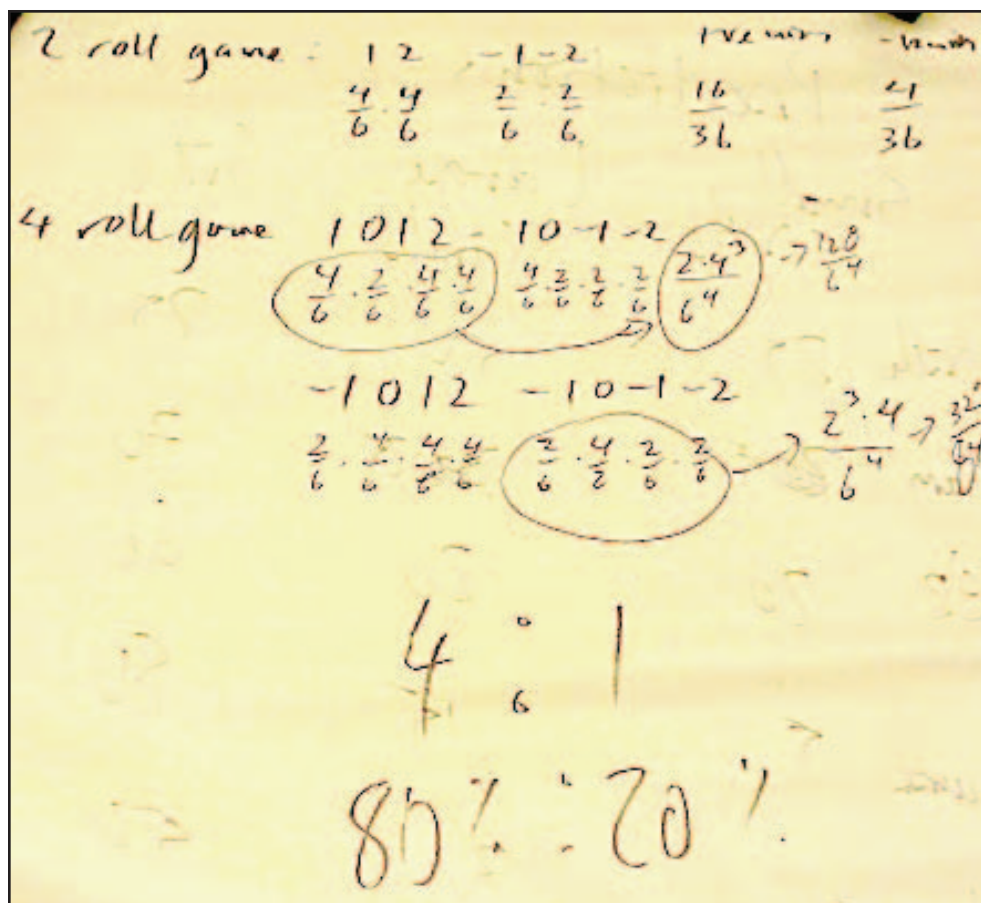 2 roll game: 1 2 -1 -2 +ve wins
4/6 · 4/6 2/6 · 2/6 16/36 4/36
4 roll game 1 0 1 2 1 0 -1 -2
4/6 · 2/6 · 4/6 · 4/6 4/6 · 2/6 · 2/6 · 2/6 2·4³/6⁴ → 128/6⁴
-1 0 1 2 -1 0 -1 -2
2/6 · 4/6 · 4/6 · 4/6 2/6 · 4/6 · 2/6 · 2/6 → 2³·4/6⁴ → 32/6⁴
4 : 1
80% : 20%